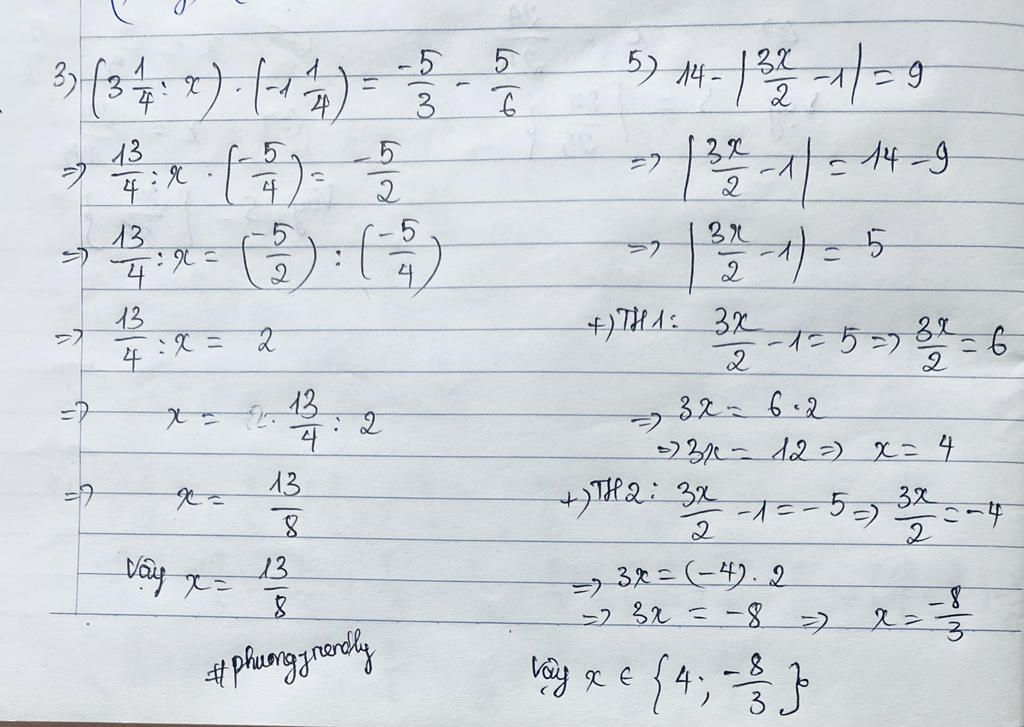 3) (3 1/4 : x) · (-1 1/4) = -5/3 - 5/6
=> 13/4 : x · (-5/4) = -5/2
=> 13/4 : x = (-5/2) : (-5/4)
=> 13/4 : x = 2
=> x = 13/4 : 2
=> x = 13/8
Vậy x = 13/8
#phuongfriendly
5) 14 - |3x/2 - 1| = 9
=> |3x/2 - 1| = 14 - 9
=> |3x/2 - 1| = 5
+) TH1: 3x/2 - 1 = 5 => 3x/2 = 6
=> 3x = 6 · 2
=> 3x = 12 => x = 4
+) TH2: 3x/2 - 1 = -5 => 3x/2 = -4
=> 3x = (-4) . 2
=> 3x = -8 => x = -8/3
Vậy x ∈ {4; -8/3}